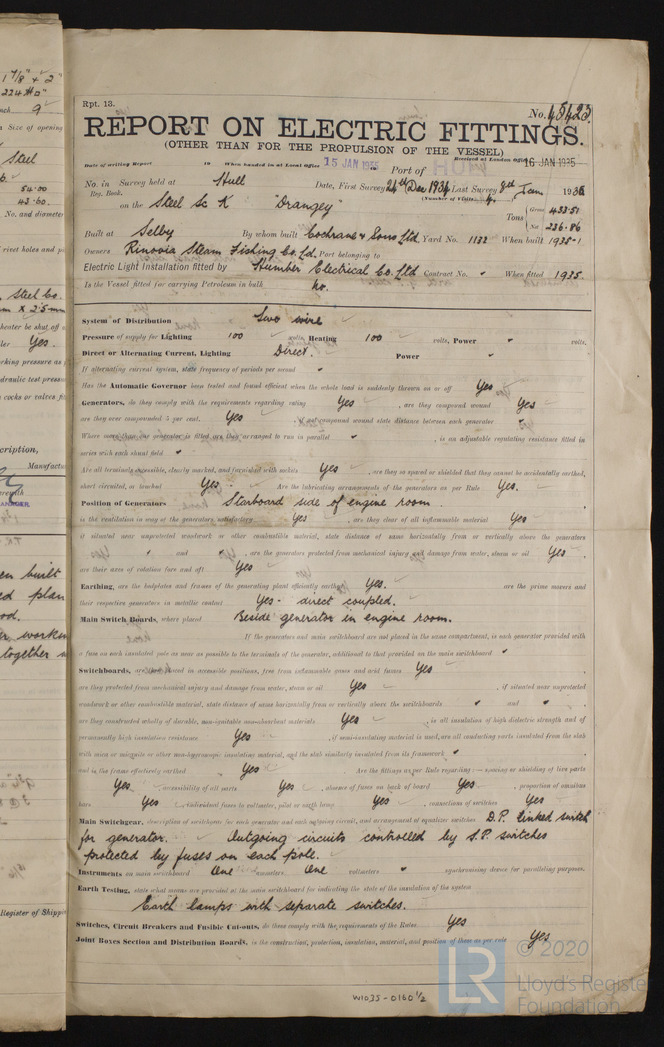 Rpt. 13.
No. 45423.
REPORT ON ELECTRIC FITTINGS.
(OTHER THAN FOR THE PROPULSION OF THE VESSEL)
Date of writing Report 19 When handed in at Local Office 15 JAN 1935 Port of HULL Received at London Office 16 JAN 1935
No. in Survey held at Hull Date, First Survey 24th Dec 1934 Last Survey 8th Jan 1935
Reg. Book. (Number of Visits 4.)
on the Steel Sc K "Drangey" Tons Gross 433.51 Net 236.86
Built at Selby By whom built Cochrane & Sons Ltd Yard No. 1132 When built 1935-1
Owners Rinovia Steam Fishing Co. Ld. Port belonging to
Electric Light Installation fitted by Humber Electrical Co. Ltd Contract No. " When fitted 1935.
Is the Vessel fitted for carrying Petroleum in bulk no.
System of Distribution Two wire
Pressure of supply for Lighting 100 volts, Heating 100 volts, Power " volts,
Direct or Alternating Current, Lighting Direct. Power "
If alternating current system, state frequency of periods per second "
Has the Automatic Governor been tested and found efficient when the whole load is suddenly thrown on or off Yes
Generators, do they comply with the requirements regarding rating Yes, are they compound wound Yes
are they over compounded 5 per cent. Yes, if not compound wound state distance between each generator "
Where more than one generator is fitted are they arranged to run in parallel ", is an adjustable regulating resistance fitted in
series with each shunt field "
Are all terminals accessible, clearly marked, and furnished with sockets Yes, are they so spaced or shielded that they cannot be accidentally earthed,
short circuited, or touched Yes. Are the lubricating arrangements of the generators as per Rule Yes.
Position of Generators Starboard side of engine room.
is the ventilation in way of the generators satisfactory Yes, are they clear of all inflammable material Yes
if situated near unprotected woodwork or other combustible material, state distance of same horizontally from or vertically above the generators
" and ", are the generators protected from mechanical injury and damage from water, steam or oil Yes
are their axes of rotation fore and aft Yes
Earthing, are the bedplates and frames of the generating plant efficiently earthed Yes. are the prime movers and
their respective generators in metallic contact Yes - direct coupled.
Main Switch Boards, where placed Beside generator in engine room.
If the generators and main switchboard are not placed in the same compartment, is each generator provided with
a fuse on each insulated pole as near as possible to the terminals of the generator, additional to that provided on the main switchboard "
Switchboards, are they placed in accessible positions, free from inflammable gases and acid fumes Yes
are they protected from mechanical injury and damage from water, steam or oil Yes, if situated near unprotected
woodwork or other combustible material, state distance of same horizontally from or vertically above the switchboards " and "
are they constructed wholly of durable, non-ignitable non-absorbent materials Yes, is all insulation of high dielectric strength and of
permanently high insulation resistance Yes, if semi-insulating material is used, are all conducting parts insulated from the slab
with mica or micanite or other non-hygroscopic insulating material, and the slab similarly insulated from its framework "
and is the frame effectively earthed Yes Are the fittings as per Rule regarding:— spacing or shielding of live parts
Yes, accessibility of all parts Yes, absence of fuses on back of board Yes, proportion of omnibus
bars Yes, individual fuses to voltmeter, pilot or earth lamp Yes, connections of switches Yes
Main Switchgear, description of switchgear for each generator and each outgoing circuit, and arrangement of equalizer switches D.P. linked switch
for generator. Outgoing circuits controlled by S.P. switches
protected by fuses on each pole.
Instruments on main switchboard One ammeters One voltmeters " synchronising device for paralleling purposes.
Earth Testing, state what means are provided at the main switchboard for indicating the state of the insulation of the system
Earth lamps with separate switches.
Switches, Circuit Breakers and Fusible Cut-outs, do these comply with the requirements of the Rules Yes
Joint Boxes Section and Distribution Boards, is the construction, protection, insulation, material, and position of these as per rule Yes
W1035-0160 1/2
© 2020
LR
Lloyd's Register
Foundation